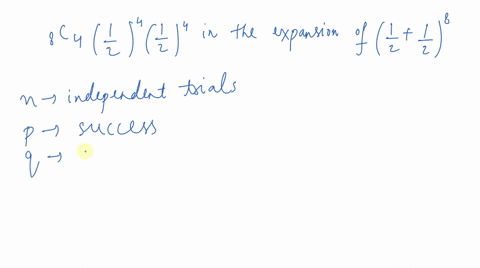 ₈C₄ (1/2)⁴ (1/2)⁴ in the expansion of (1/2 + 1/2)⁸
n → independent trials
p → success
q →